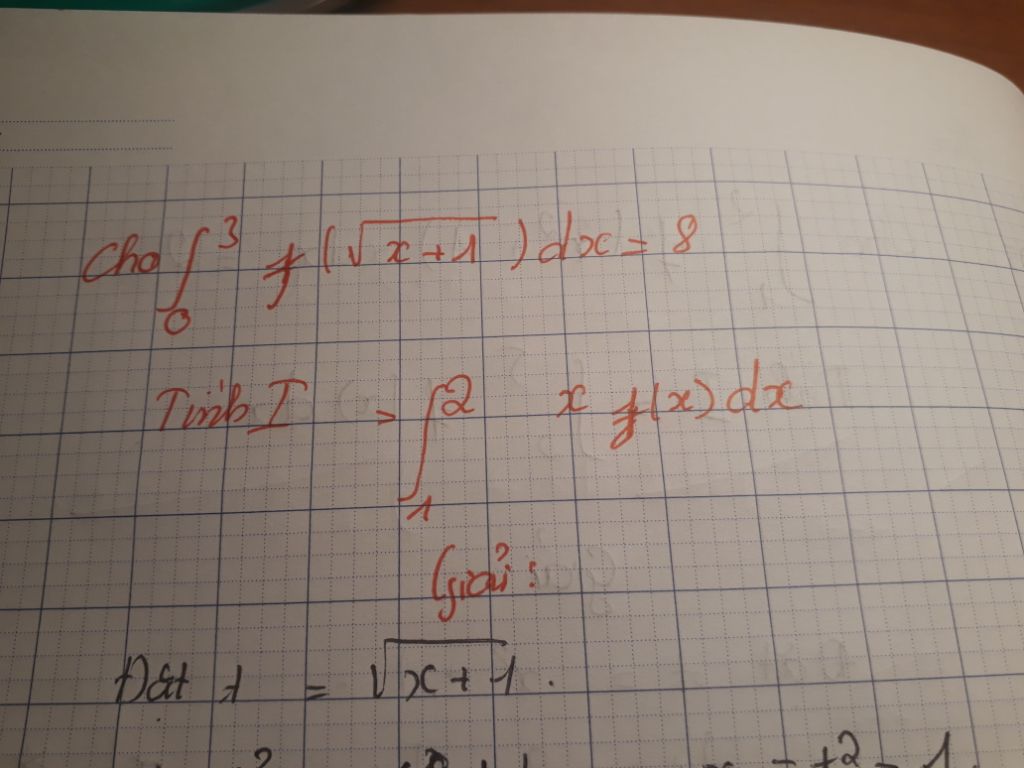 Cho ∫₀³ f(√(x+1)) dx = 8
Tính I = ∫₁² x f(x) dx
Giải:
Đặt t = √(x+1).
x = t² - 1